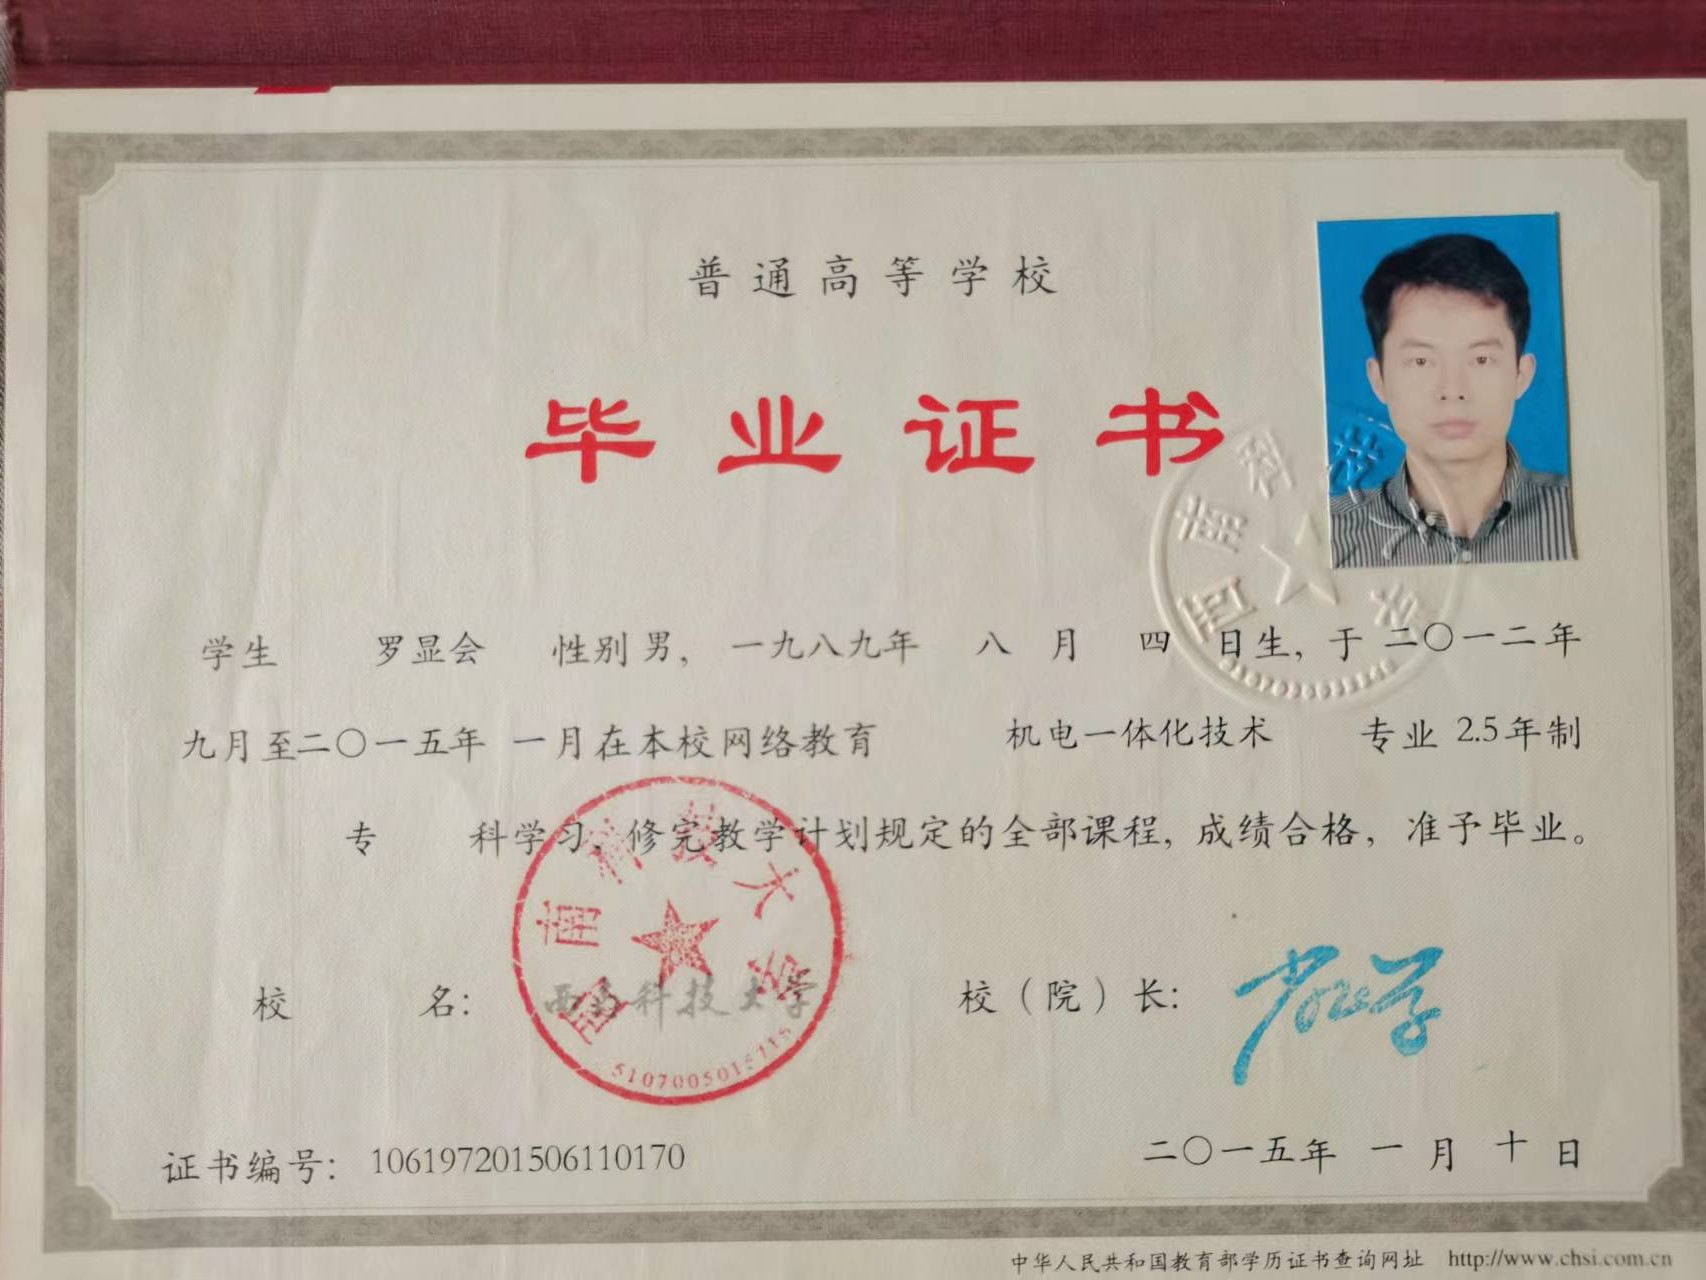 普通高等学校
毕业证书
学生 罗显会 性别 男, 一九八九年 八 月 四 日生, 于 二〇一二年
九月至二〇一五年 一月在本校网络教育 机电一体化技术 专业 2.5年制
专 科学习, 修完教学计划规定的全部课程, 成绩合格, 准予毕业。
校 名: 西南科技大学 校（院）长:
西南科技大学
证书编号: 106197201506110170 二〇一五年 一 月 十 日
中华人民共和国教育部学历证书查询网址 http://www.chsi.com.cn